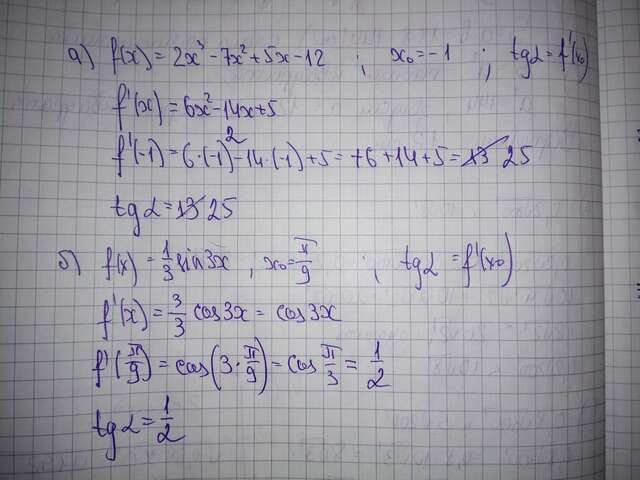 а) f(x) = 2x³ - 7x² + 5x - 12 ; x₀ = -1 ; tg α = f'(x₀)
f'(x) = 6x² - 14x + 5
f'(-1) = 6·(-1)² - 14·(-1) + 5 = +6 + 14 + 5 = 13 25
tg α = 13 25
б) f(x) = 1/3 sin 3x , x₀ = π/9 ; tg α = f'(x₀)
f'(x) = 3/3 cos 3x = cos 3x
f'(π/9) = cos(3·π/9) = cos π/3 = 1/2
tg α = 1/2